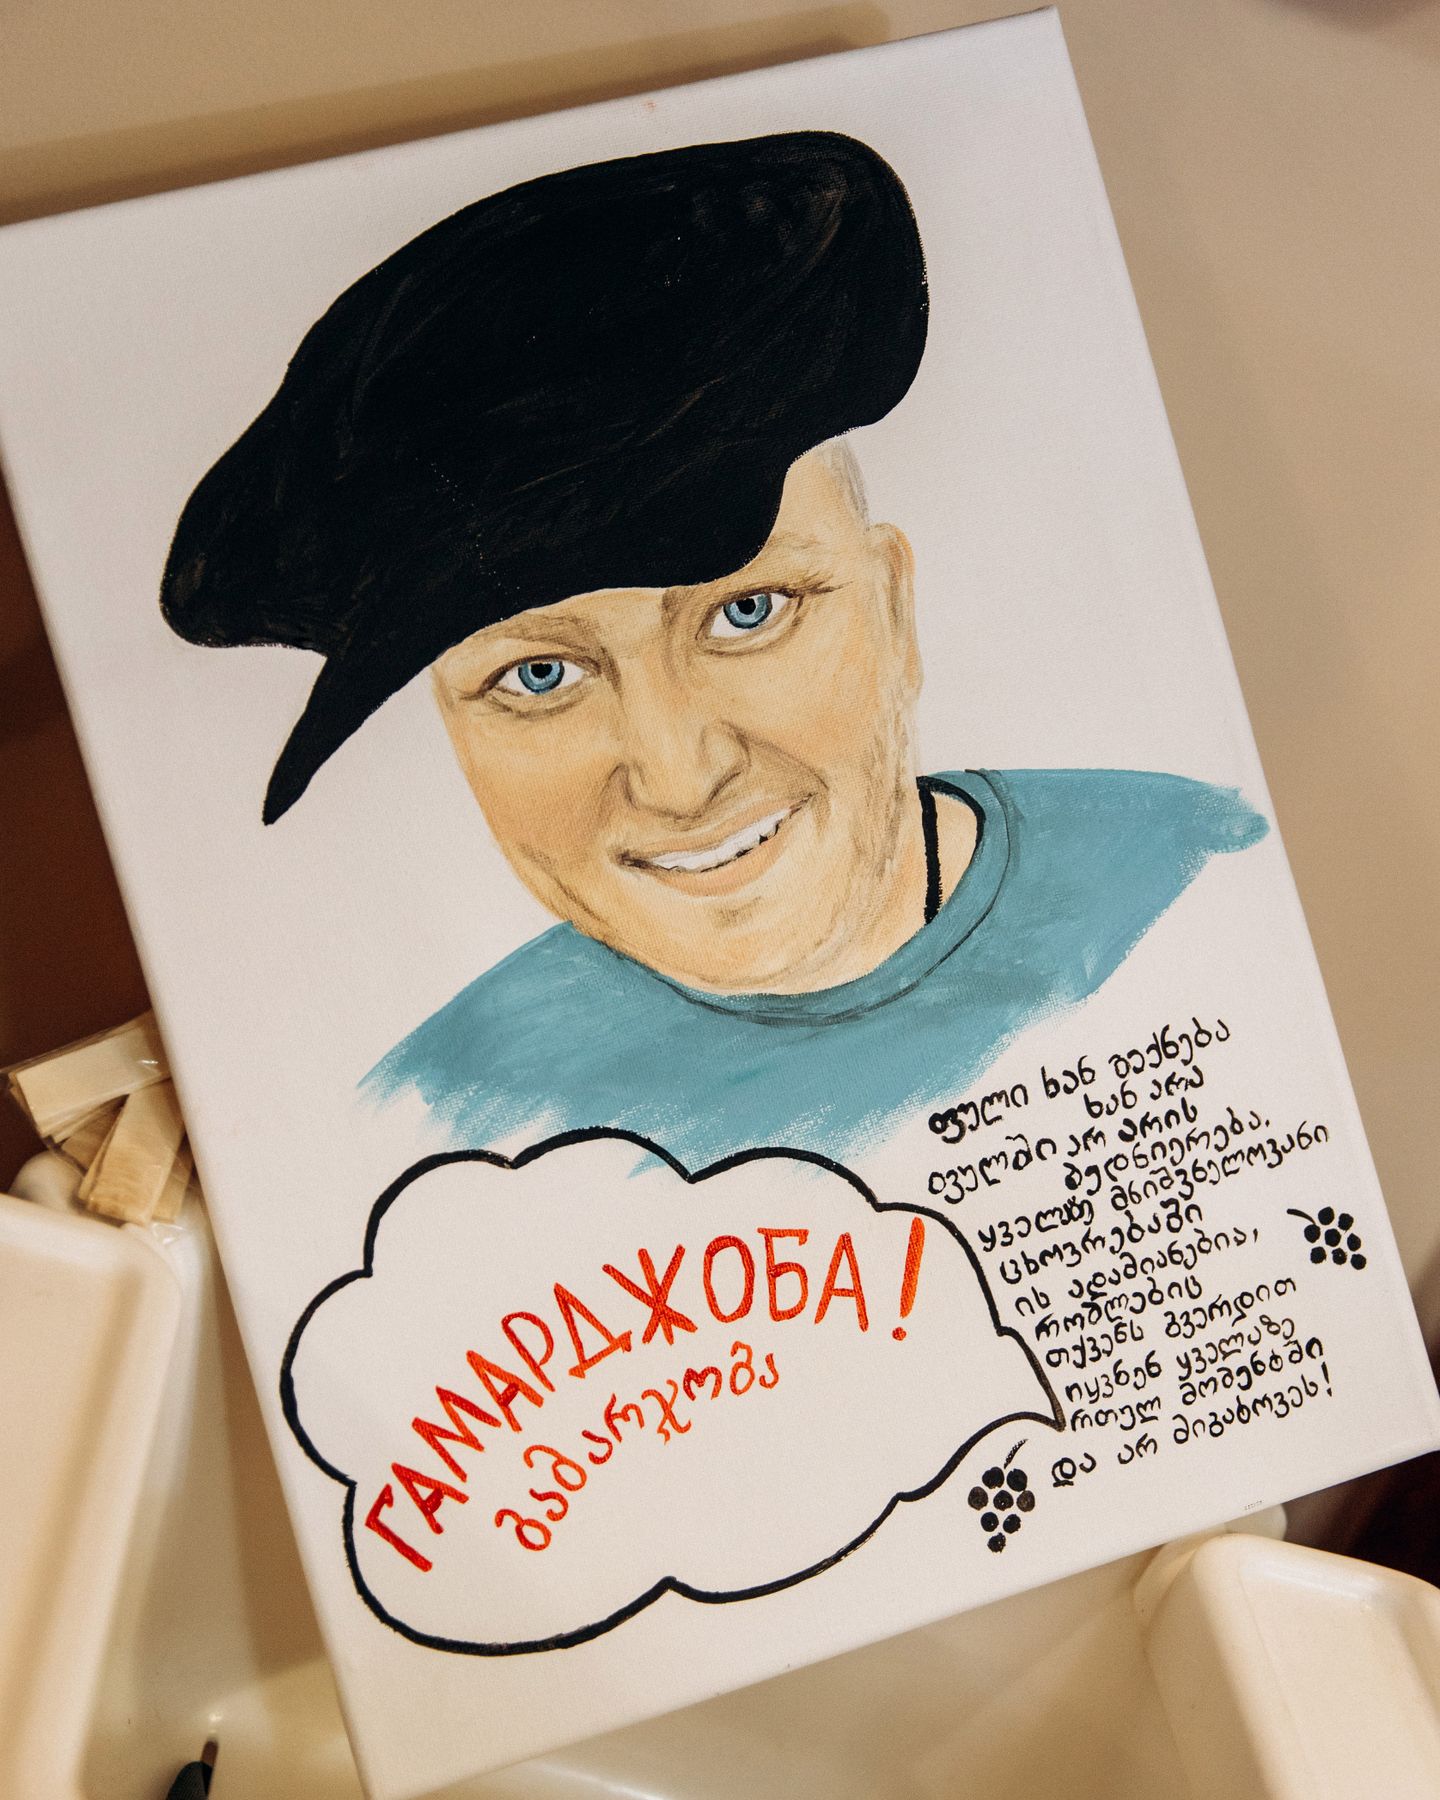 ГАМАРДЖОБА!
გამარჯობა
ფული ხან გექნება
ხან არა
ფულში არ არის
ბედნიერება.
ყველაზე მნიშვნელოვანი
ცხოვრებაში
ის ადამიანებია,
რომლებიც
თქვენს გვერდით
იყვნენ ყველაზე
რთულ მომენტში
და არ მიგატოვეს!